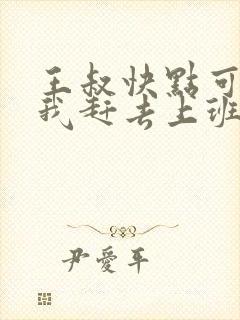 王叔快點可
我赶去上班
尹愛平